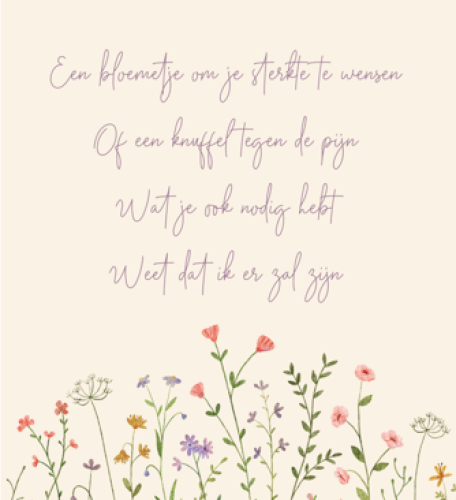 Een bloemetje om je sterkte te wensen
Of een knuffel tegen de pijn
Wat je ook nodig hebt
Weet dat ik er zal zijn